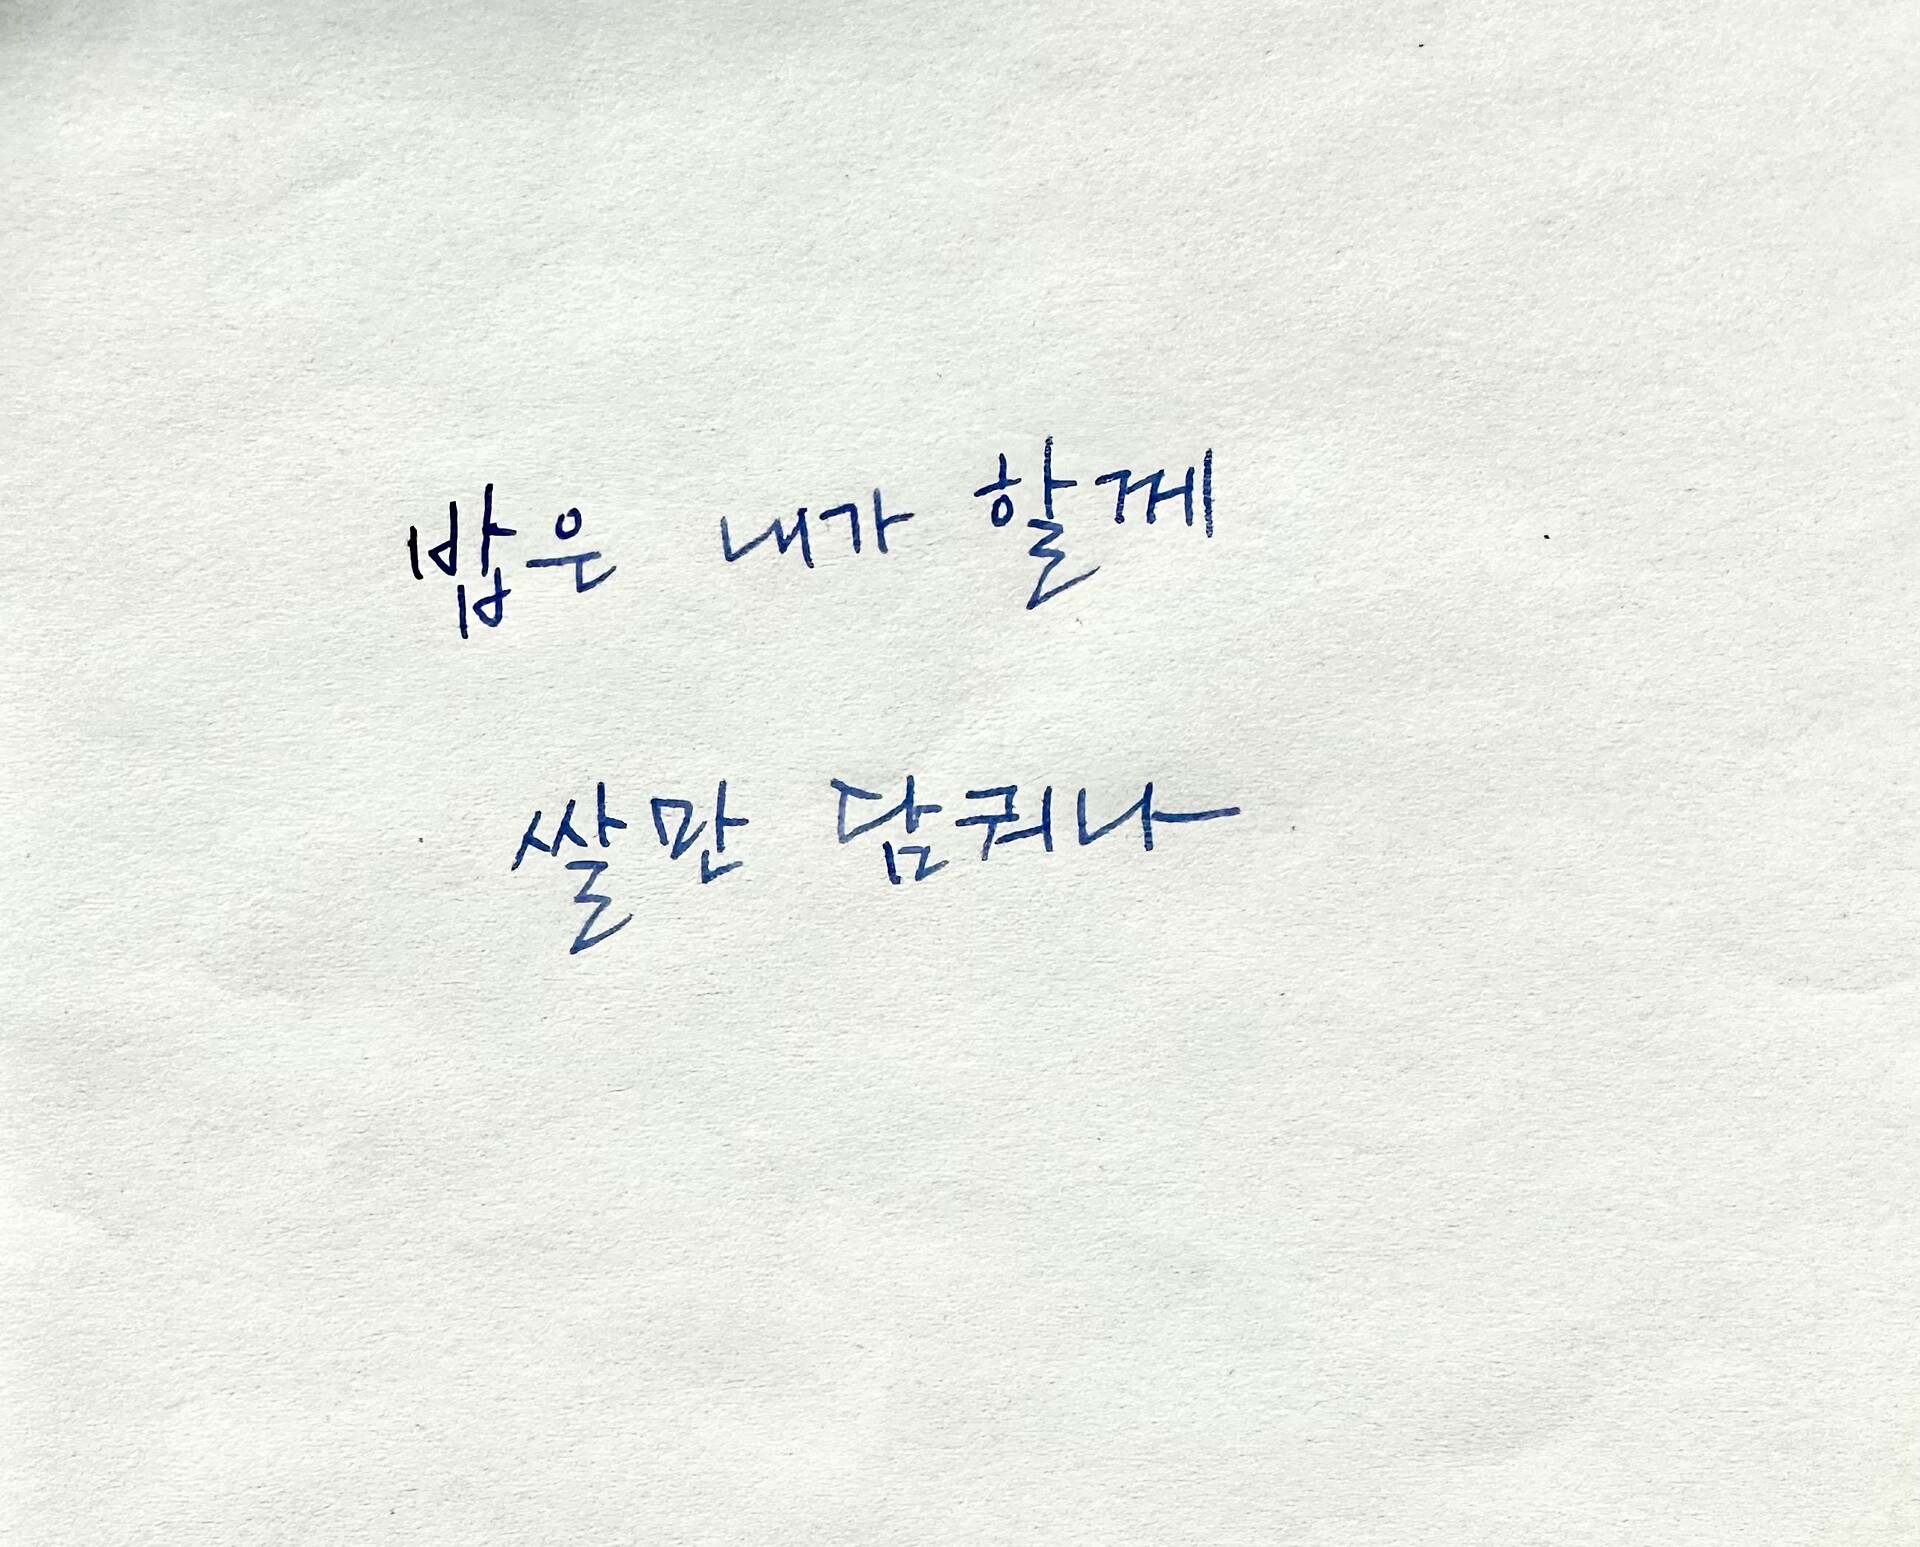 밥은 내가 할께
쌀만 담궈나